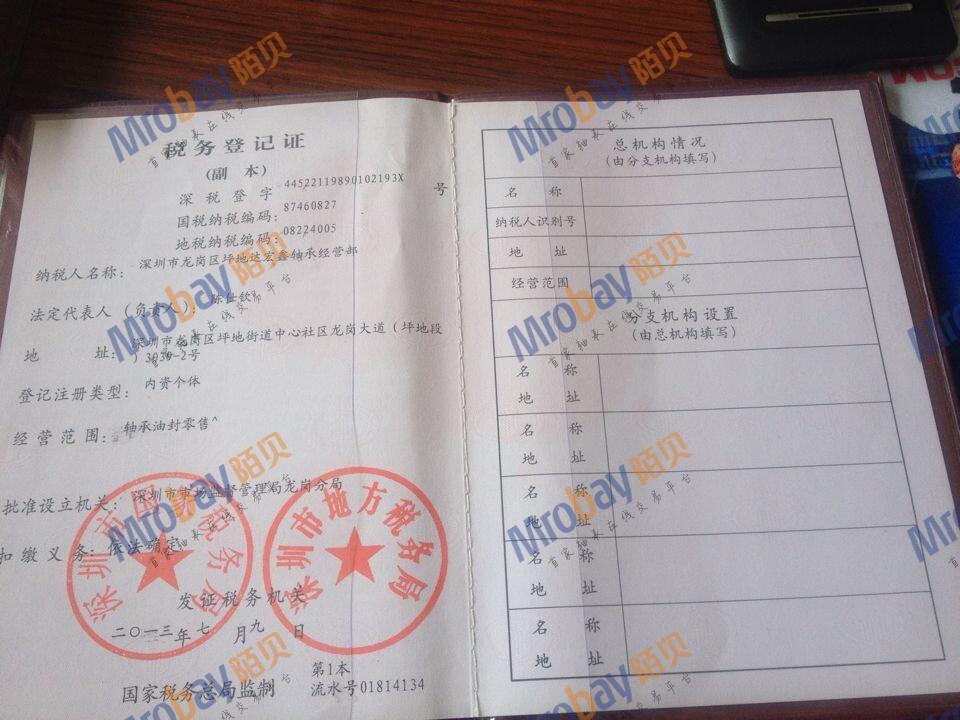 税务登记证
(副 本)
深 税 登 字 44522119890102193X 号
国税纳税编码: 87460827
地税纳税编码: 08224005
纳税人名称: 深圳市龙岗区坪地达宏鑫轴承经营部
法定代表人(负责人): 陈仕钦
地 址: 深圳市龙岗区坪地街道中心社区龙岗大道(坪地段
)3030-2号
登记注册类型: 内资个体
经营范围: 轴承油封零售^
批准设立机关: 深圳市市场监督管理局龙岗分局
扣缴义务: 依法确定
发证税务机关
二〇一三年 七 月 九 日
第1本
国家税务总局监制 流水号01814134
深圳市国家税务局
深圳市地方税务局
总机构情况
(由分支机构填写)
名 称
纳税人识别号
地 址
经营范围
分支机构设置
(由总机构填写)
名 称
地 址
名 称
地 址
名 称
地 址
名 称
地 址
名 称
地 址
Mrobay陌贝
首家轴承在线交易平台